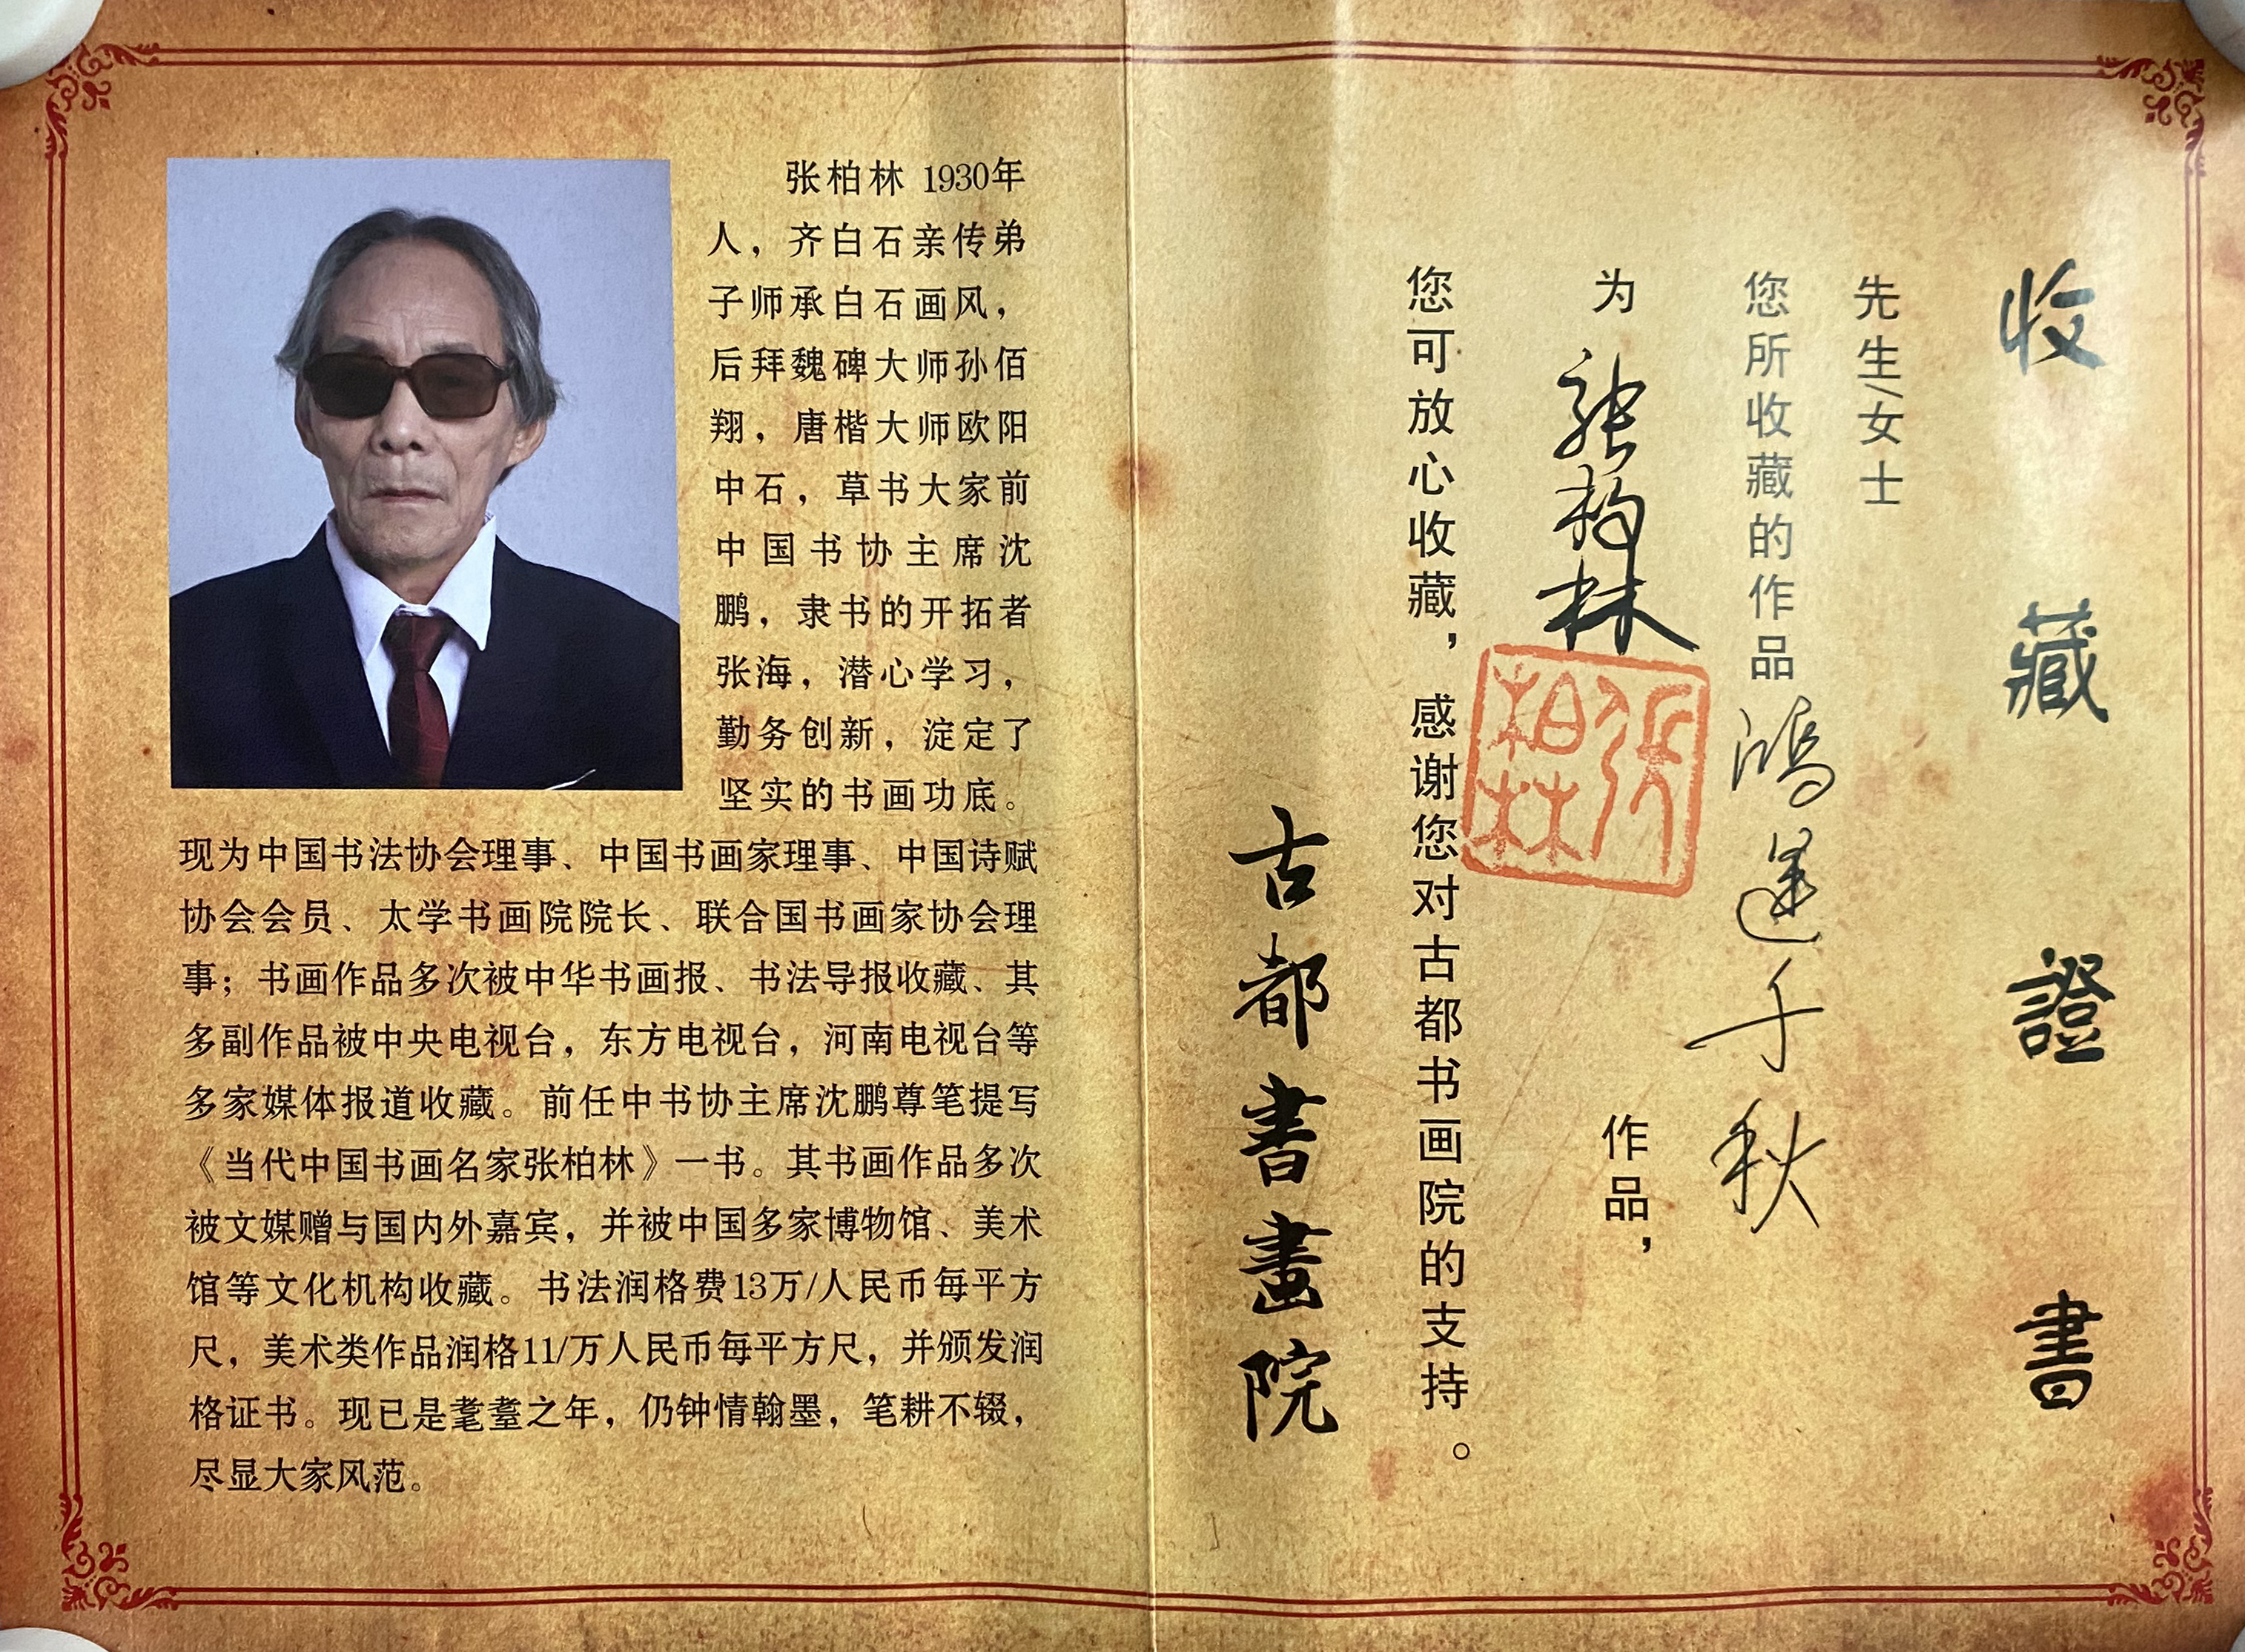 张柏林 1930年
人，齐白石亲传弟
子师承白石画风，
后拜魏碑大师孙佰
翔，唐楷大师欧阳
中石，草书大家前
中国书协主席沈
鹏，隶书的开拓者
张海，潜心学习，
勤务创新，淀定了
坚实的书画功底。
现为中国书法协会理事、中国书画家理事、中国诗赋
协会会员、太学书画院院长、联合国书画家协会理
事；书画作品多次被中华书画报、书法导报收藏、其
多副作品被中央电视台，东方电视台，河南电视台等
多家媒体报道收藏。前任中书协主席沈鹏尊笔提写
《当代中国书画名家张柏林》一书。其书画作品多次
被文媒赠与国内外嘉宾，并被中国多家博物馆、美术
馆等文化机构收藏。书法润格费13万/人民币每平方
尺，美术类作品润格11/万人民币每平方尺，并颁发润
格证书。现已是耄耋之年，仍钟情翰墨，笔耕不辍，
尽显大家风范。
收藏證書
先生/女士
您所收藏的作品鴻運千秋
为張柏林作品，
张柏林
您可放心收藏，感谢您对古都书画院的支持。
古都書畫院